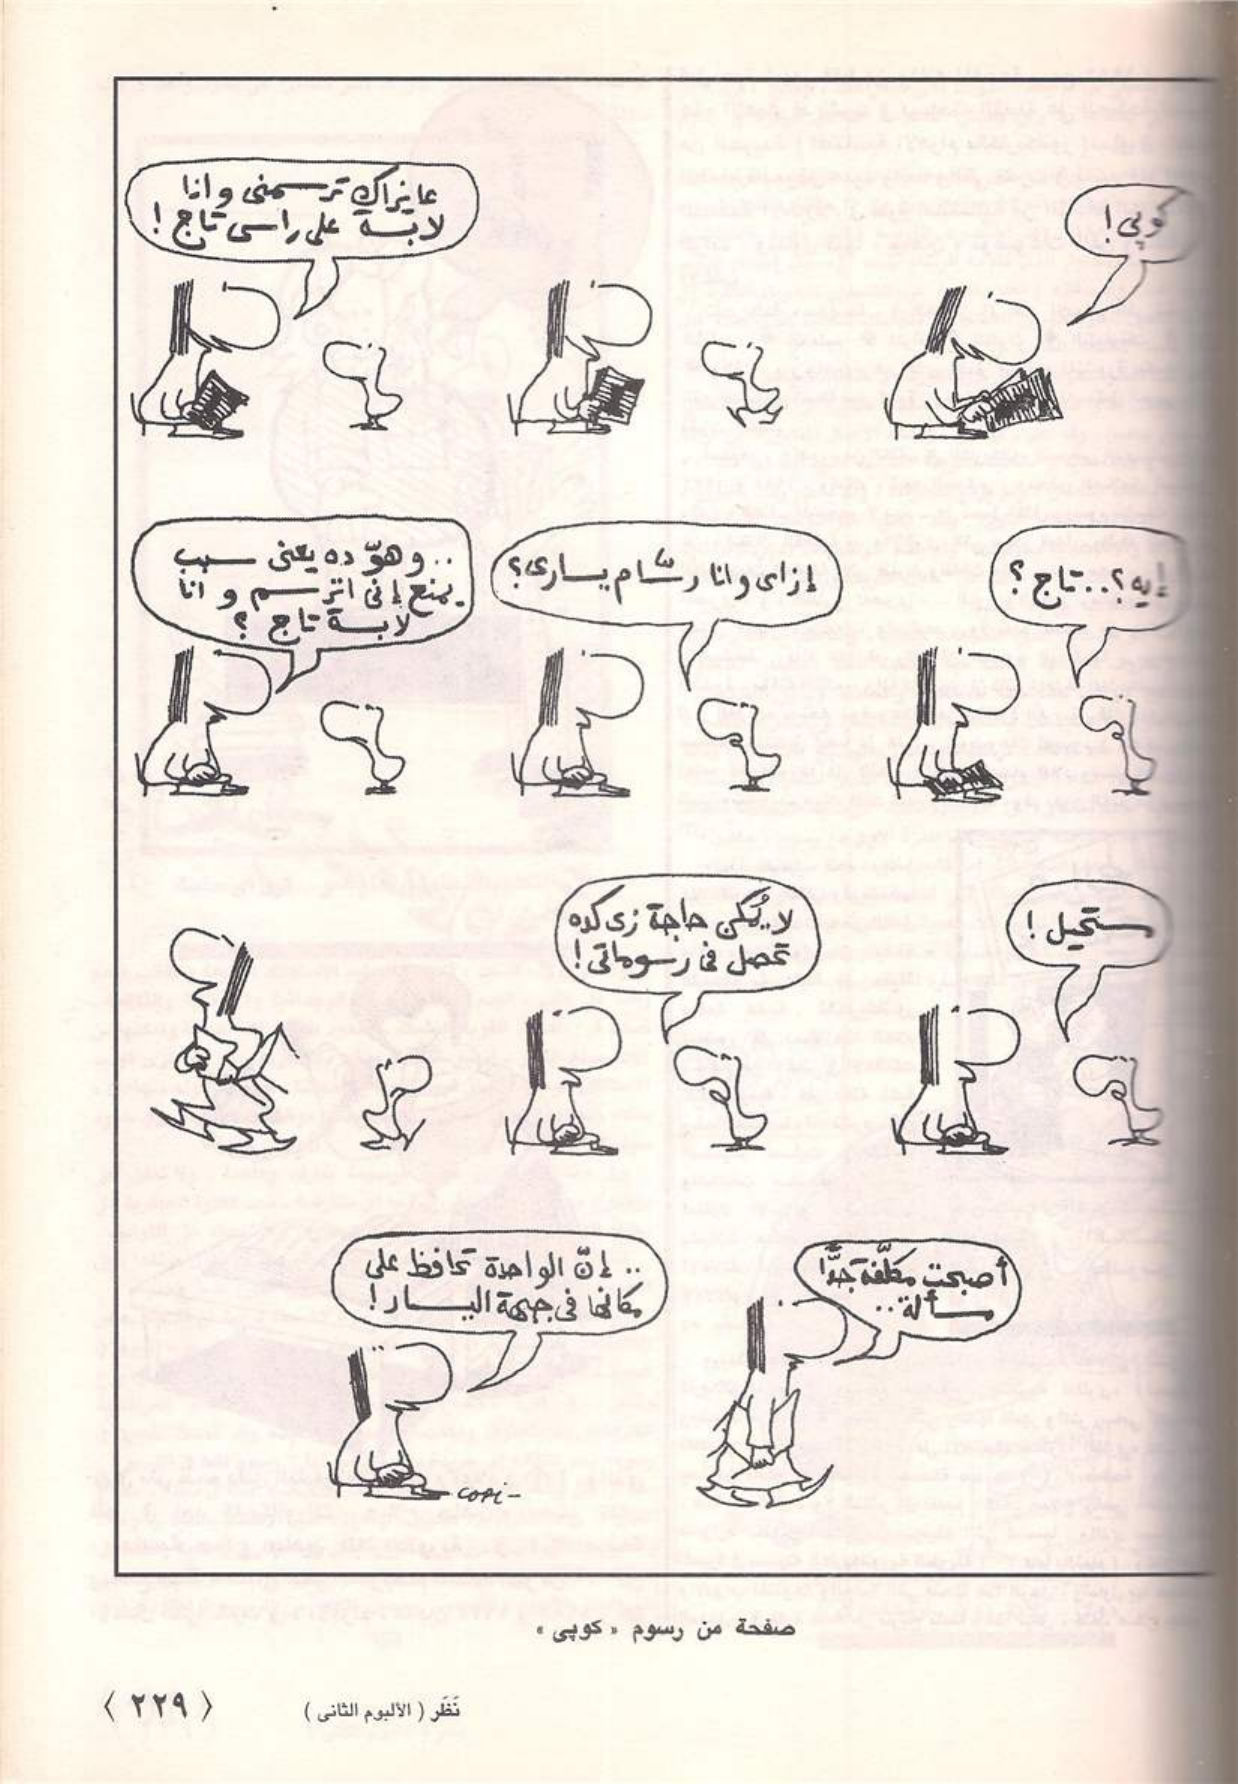 كوپى !
عايزاك ترسمنى وانا
لابسة على راسى تاج !
إيه ؟ .. تاج ؟
إزاى وانا رسّام يسارى ؟
.. وهوّ ده يعنى سبب
يمنع إنى اترسم و انا
لابسة تاج ؟
مستحيل !
لا يُمكن حاجة زى كده
تحصل فى رسوماتى !
أصبحت مكلّفة جدًّا
مسألة ..
.. إنّ الواحدة تحافظ على
مكانها فى جبهة اليسار !
COPI-
صفحة من رسوم « كوپى »
نَظَر ( الألبوم الثانى )
⟨ ٢٢٩ ⟩